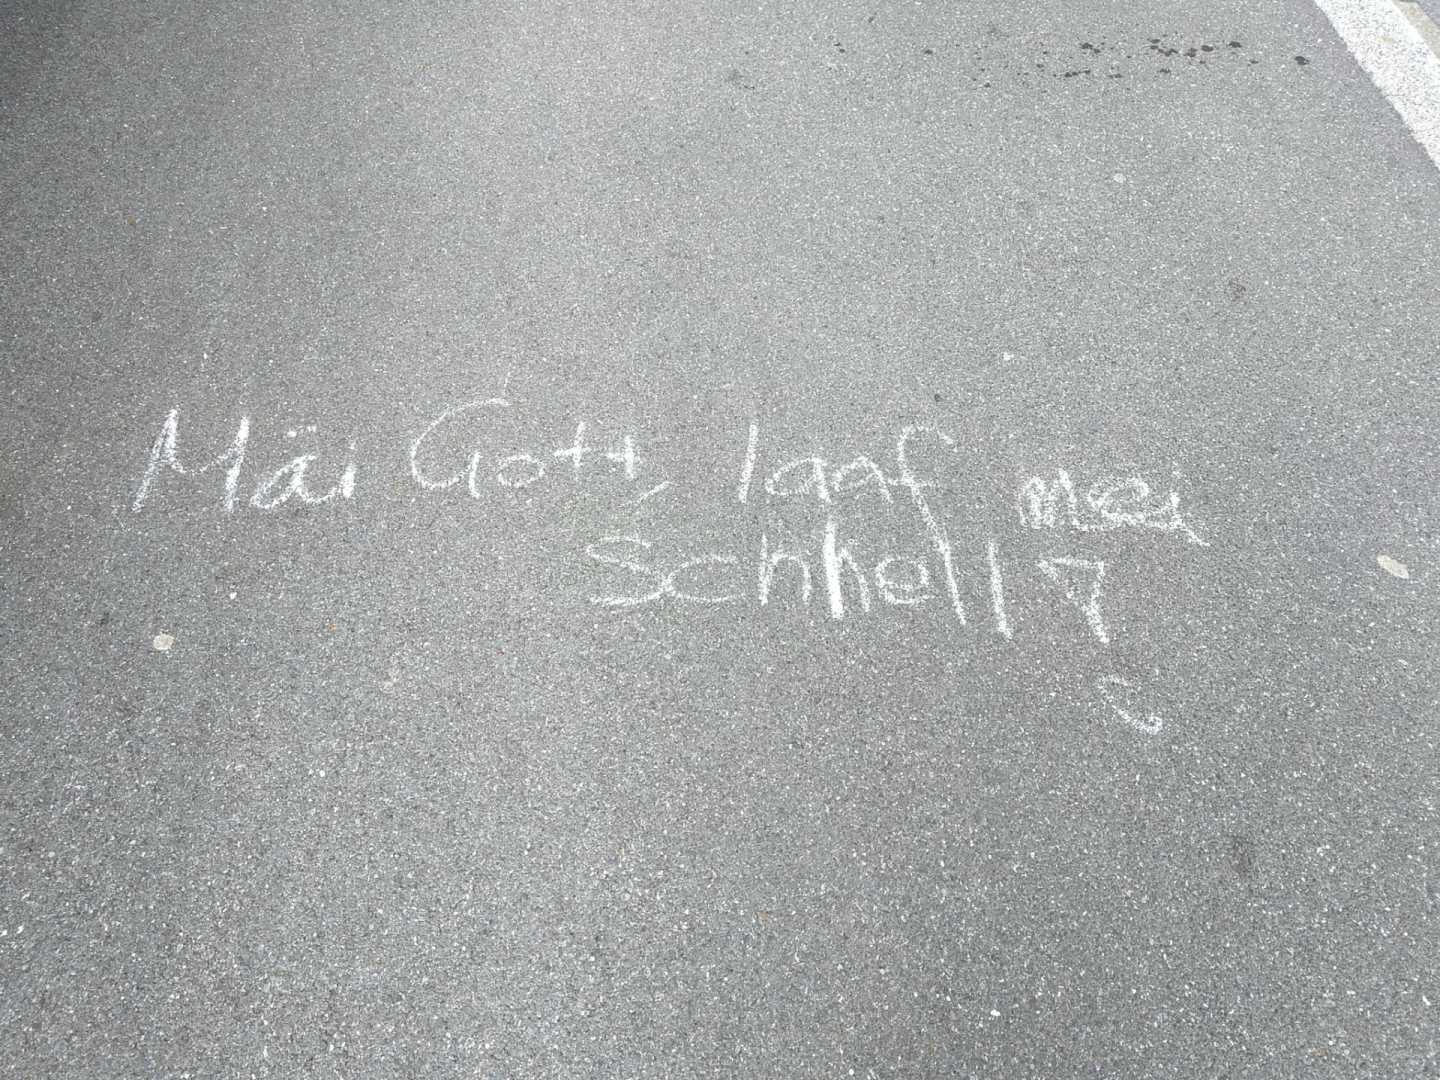 Mäi Gott, laaf méi
Schnell!